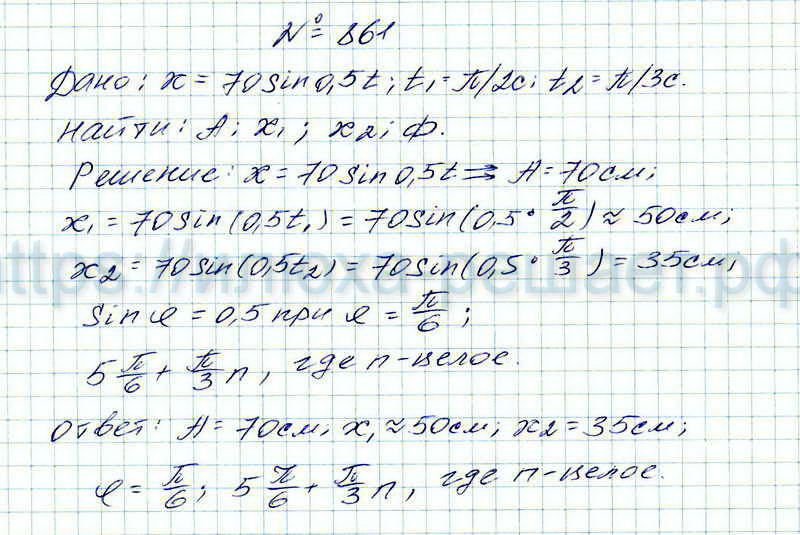 № 861
Дано: x = 70sin0,5t; t₁ = π/2с; t₂ = π/3с.
Найти: A; x₁; x₂; Ф.
Решение: x = 70sin0,5t ⇒ A = 70см;
x₁ = 70sin(0,5t₁) = 70sin(0,5·π/2) ≈ 50см;
x₂ = 70sin(0,5t₂) = 70sin(0,5·π/3) = 35см;
sin φ = 0,5 при φ = π/6;
5π/6 + π/3 n, где n-целое.
Ответ: A = 70см; x₁ ≈ 50см; x₂ = 35см;
φ = π/6; 5π/6 + π/3 n, где n-целое.